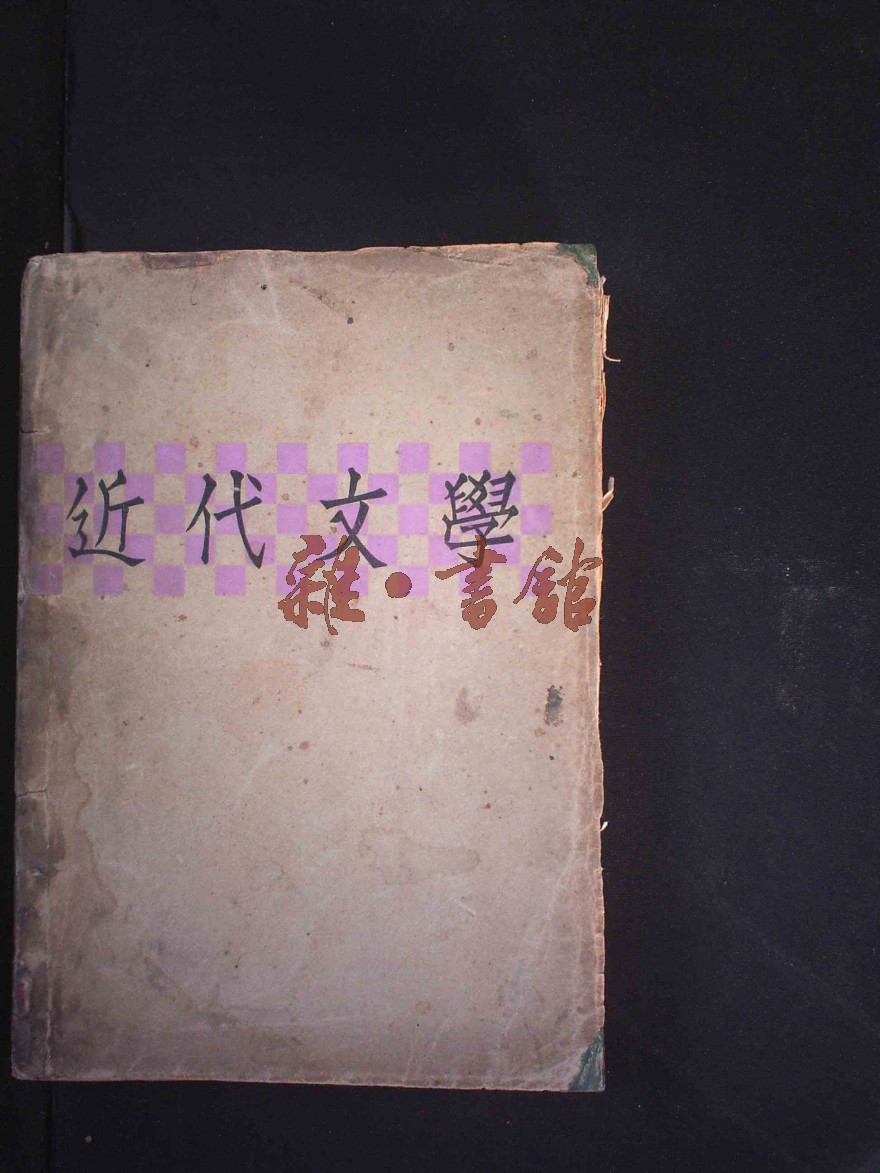 近代文學
雜·書館